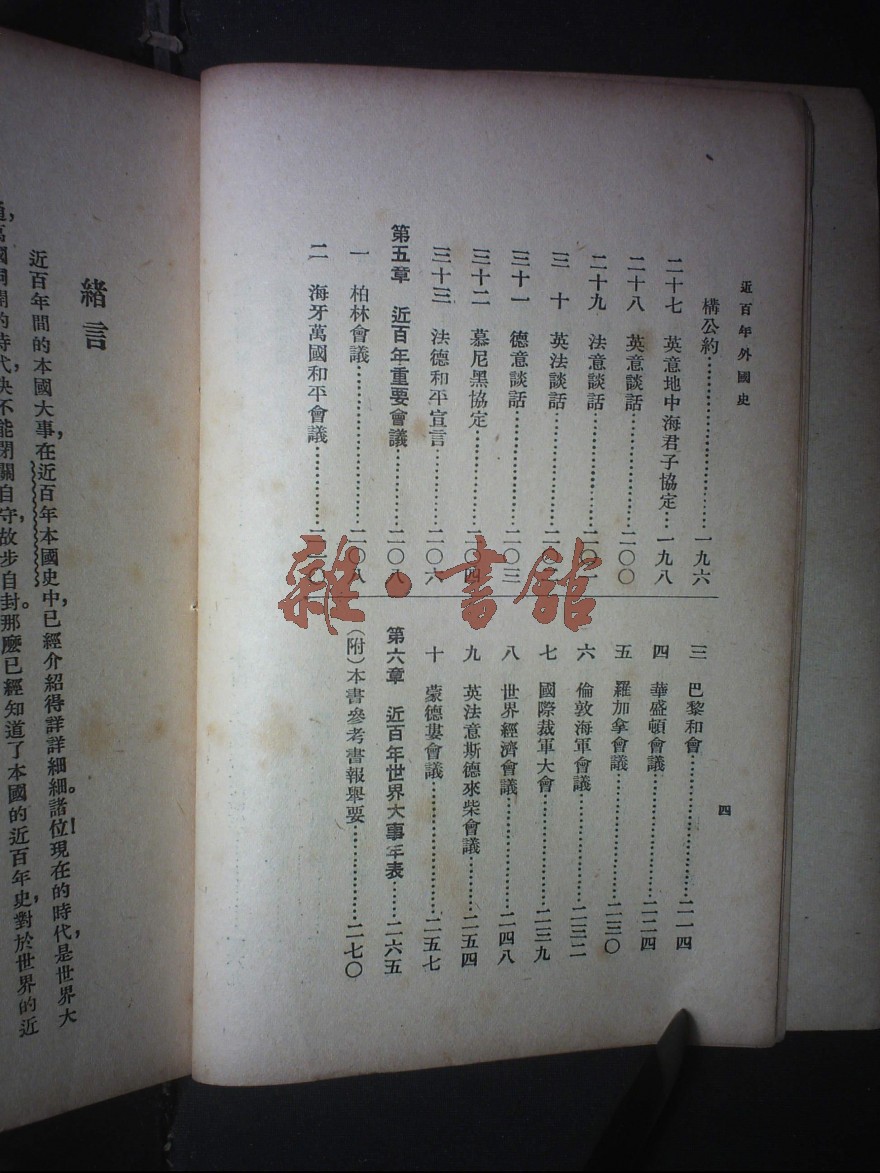 近百年外國史
構公約……一九六
二十七 英意地中海君子協定…一九八
二十八 英意談話……二〇〇
二十九 法意談話……二〇一
三十 英法談話……二〇二
三十一 德意談話……二〇三
三十二 慕尼黑協定……二〇四
三十三 法德和平宣言……二〇六
第五章 近百年重要會議……二〇八
一 柏林會議……二〇八
二 海牙萬國和平會議……二一〇
三 巴黎和會……二一四
四 華盛頓會議……二二四
五 羅加拿會議……二三〇
六 倫敦海軍會議……二三二
七 國際裁軍大會……二三九
八 世界經濟會議……二四八
九 英法意斯德來柴會議……二五四
十 蒙德婁會議……二五七
第六章 近百年世界大事年表……二六五
(附)本書參考書報舉要……二七〇
四
緒言
近百年間的本國大事,在近百年本國史中,已經介紹得詳詳細細。諸位!現在的時代,是世界大
通,萬國同開的時代,決不能閉關自守,故步自封。那麼已經知道了本國的近百年史,對於世界的近
雜·書館